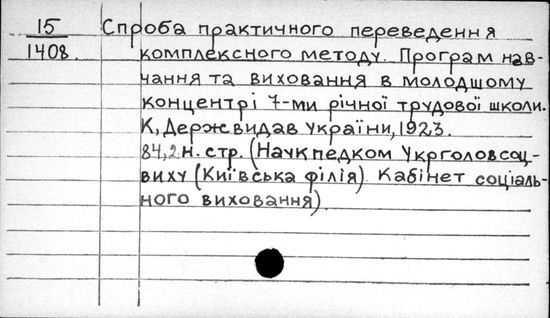 15
1408.
Спроба практичного переведення
комплексного методу. Програм нав-
чання та виховання в молодшому
концентрі 7-ми річної трудової школи.
К, Держвидав України, 1923.
84,2 н. стр. (Наукпедком Укрголовсоц-
виху (Київська філія) Кабінет соціаль-
ного виховання)